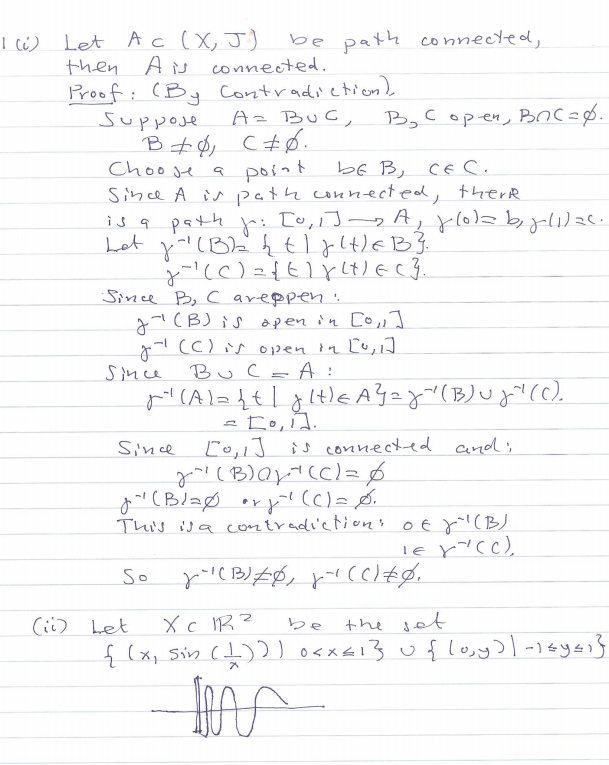 1 (i) Let A ⊂ (X, J) be path connected,
then A is connected.
Proof: (By Contradiction),
Suppose A = B ∪ C, B, C open, B∩C = ∅.
B ≠ ∅, C ≠ ∅.
Choose a point b ∈ B, c ∈ C.
Since A is path connected, there
is a path γ: [0,1] → A, γ(0) = b, γ(1) = c.
Let γ⁻¹(B) = { t | γ(t) ∈ B }.
γ⁻¹(C) = { t | γ(t) ∈ C }.
Since B, C are open:
γ⁻¹(B) is open in [0,1]
γ⁻¹(C) is open in [0,1]
Since B ∪ C = A:
γ⁻¹(A) = { t | γ(t) ∈ A } = γ⁻¹(B) ∪ γ⁻¹(C).
= [0,1].
Since [0,1] is connected and:
γ⁻¹(B) ∩ γ⁻¹(C) = ∅
γ⁻¹(B) = ∅ or γ⁻¹(C) = ∅.
This is a contradiction: 0 ∈ γ⁻¹(B)
1 ∈ γ⁻¹(C).
So γ⁻¹(B) ≠ ∅, γ⁻¹(C) ≠ ∅.
(ii) Let X ⊂ ℝ² be the set
{ (x, sin(1/x)) | 0 < x ≤ 1 } ∪ { (0,y) | -1 ≤ y ≤ 1 }